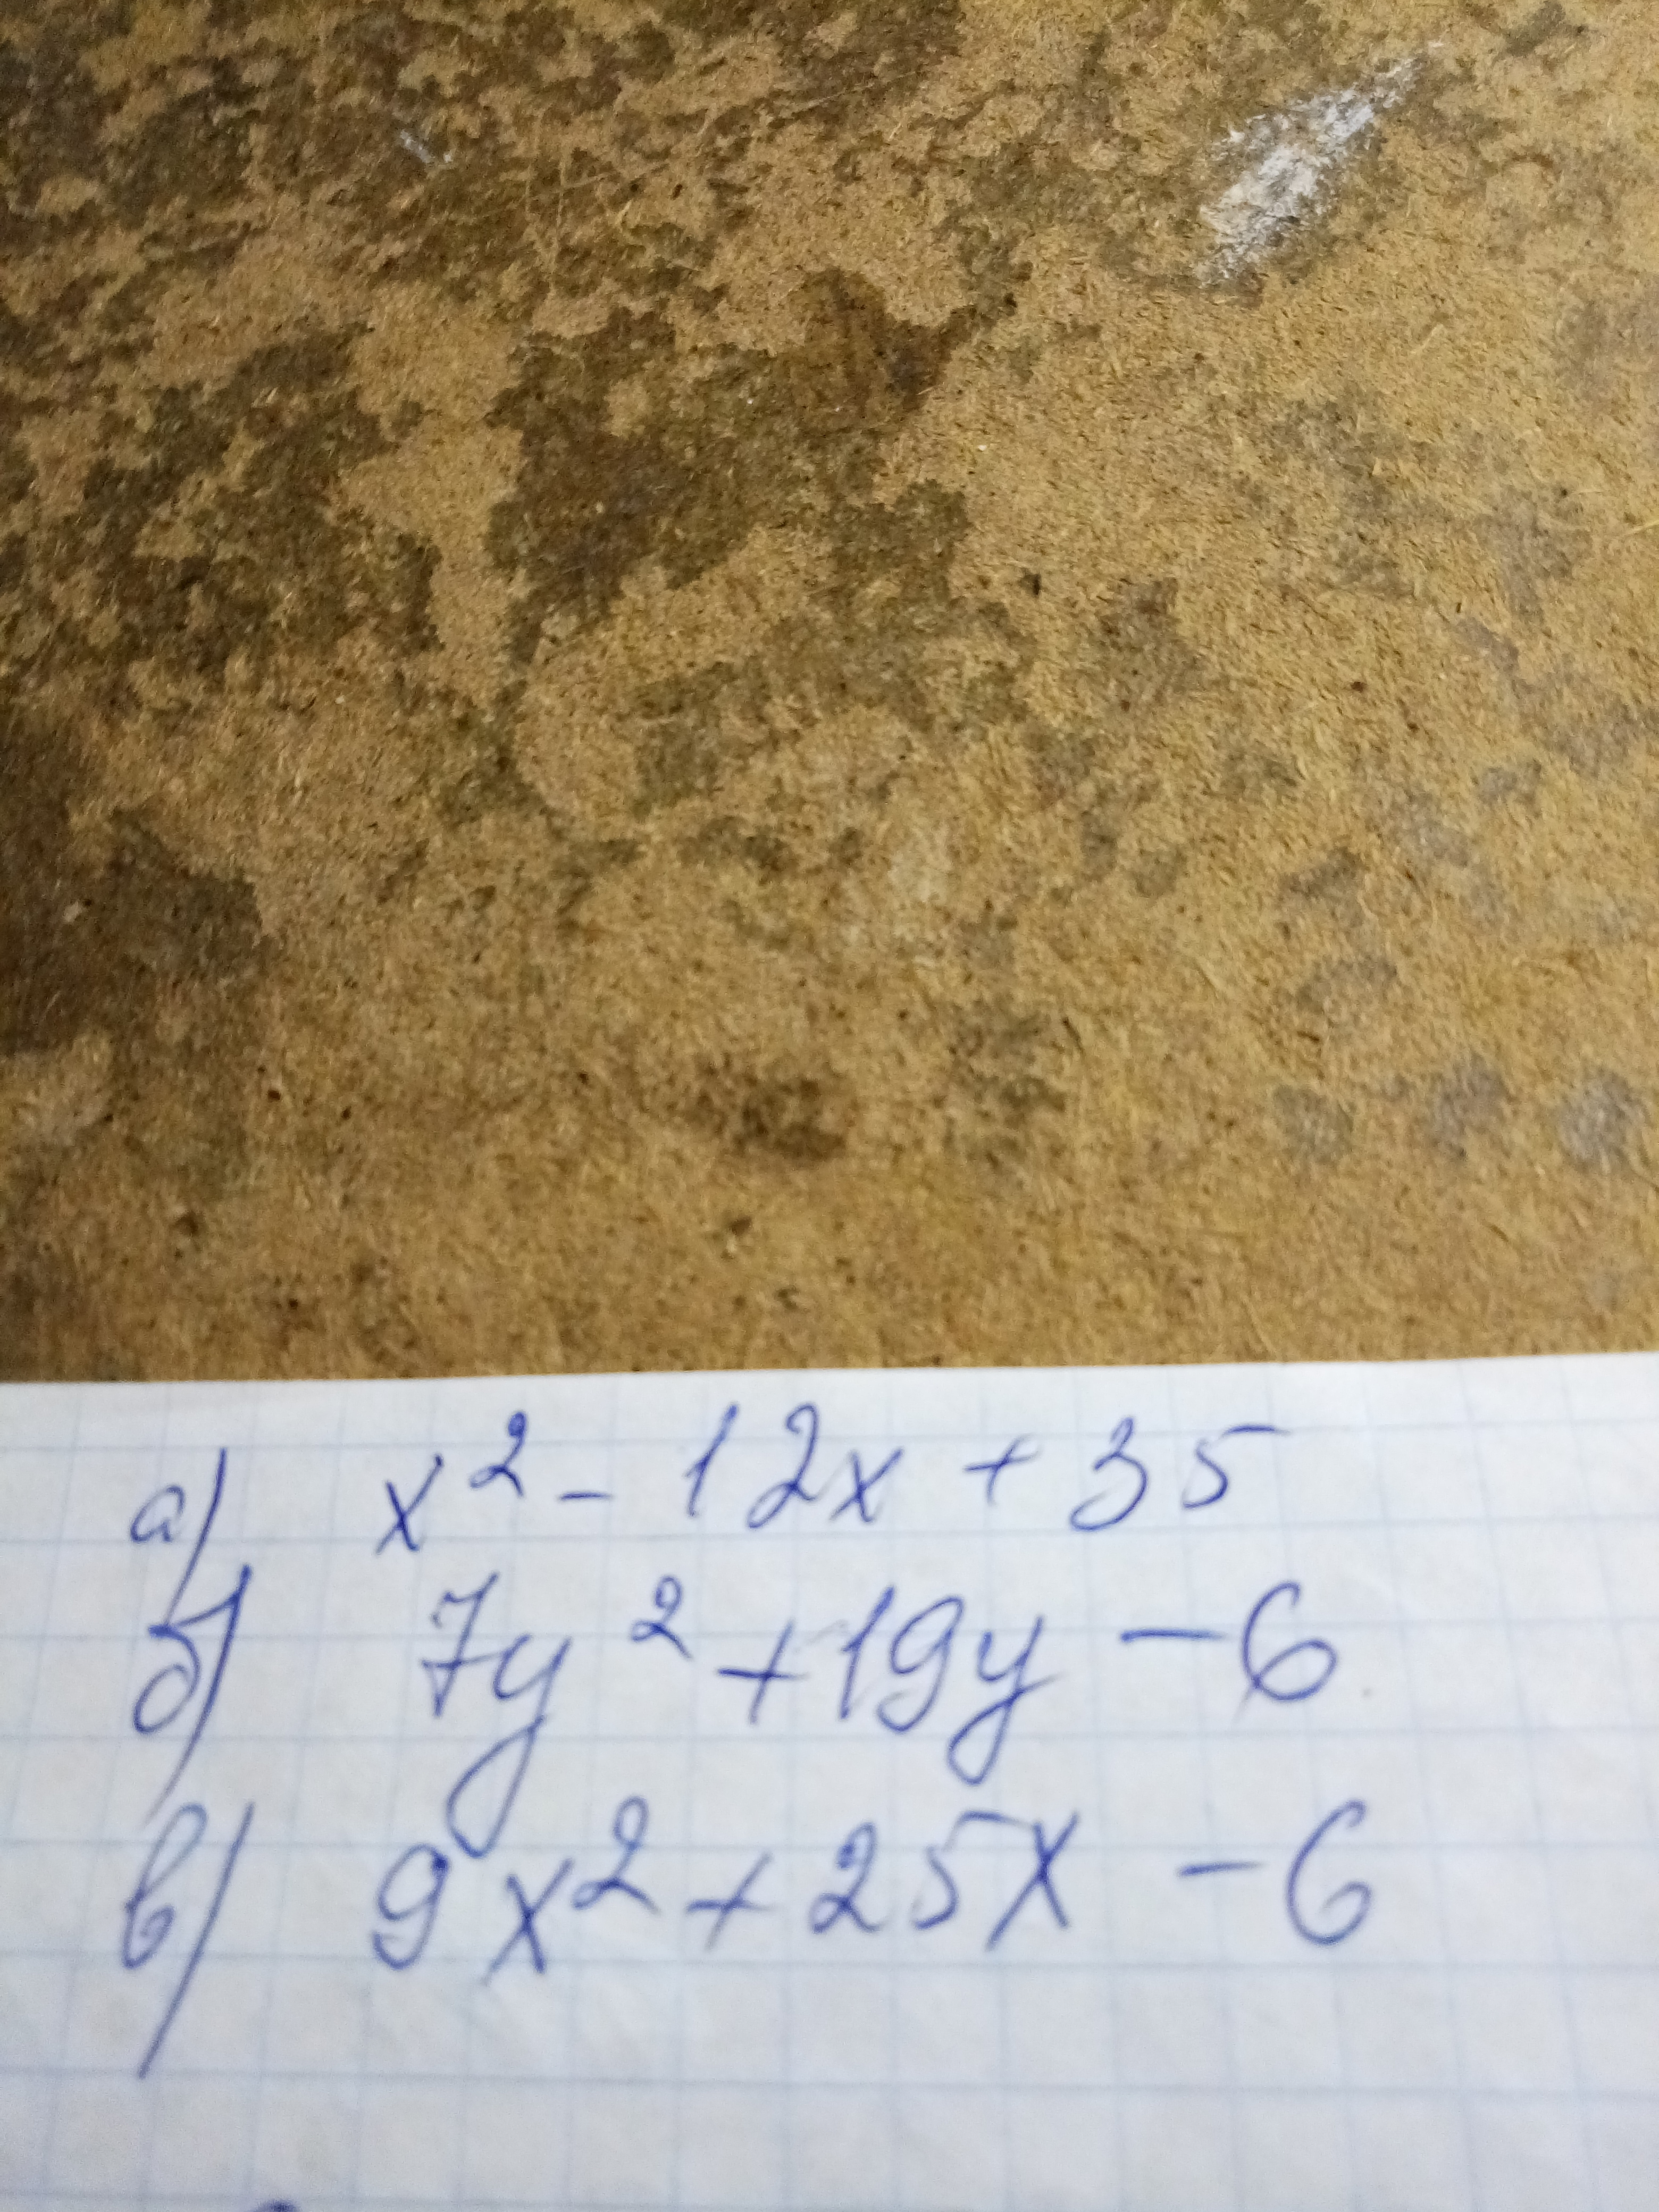 а) x² - 12x + 35
б) 7y² + 19y - 6
в) 9x² + 25x - 6